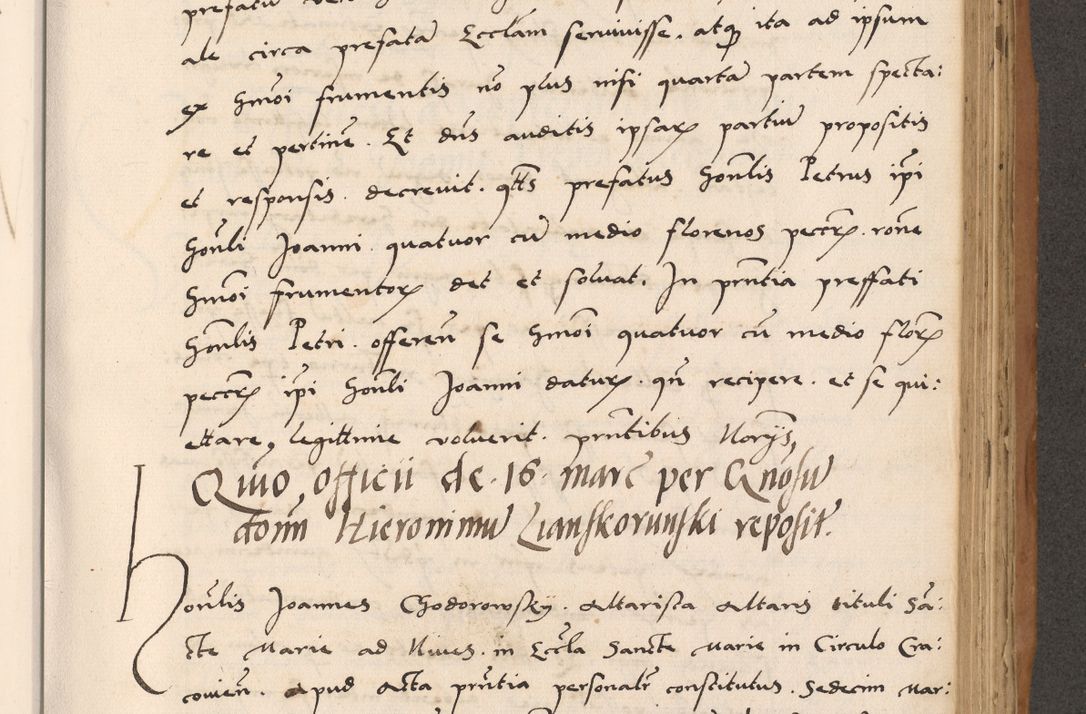 ale circa prefatā Eccl̄am seruiuisse. atq̄ ita ad ipsum
ex Hm̄oi frumentis nō plus nisi quartā partem specta:
re et pertinē. Et dn̄s auditis ipsarꝝ partiū propositis
et responsis. decrevit. qt̄t̄s prefatus Hon̄lis Petrus ip̄i
Hon̄li Joanni. quatuor cū medio florenos peccr̄ꝝ. rōne
Hm̄oi frumentorꝝ det et soluat. In pn̄tia preffati
Hon̄lis Petri. offeren̄ se Hm̄oi quatuor cū medio flor̄ꝝ
peccr̄ꝝ ip̄i Hon̄li Joanni daturꝝ. qn̄ recipere. et se qui:
ettare, legittime voluerit. pn̄tibus Norijs,
Quo officii de. 16. marc̄ per Gn̄osū
dom̄ Hieronimū Lianskorunski reposit̄.
Hon̄lis Joannes Chodorowskÿ. Altarista Altaris tituli Sā:
cte Marie ad Nives. in Eccl̄a Sancte Marie in Circulo Cra:
couien̄. Apud Acta pn̄tia personalr̄ constitutus. Sedecim mar: